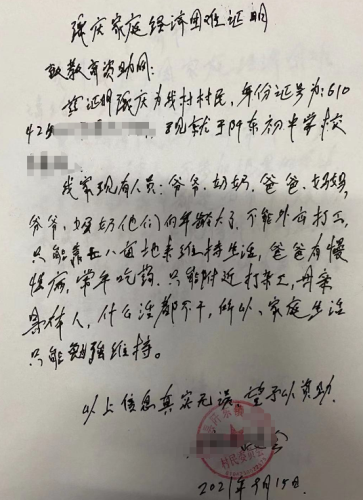 强庆家庭经济困难证明
致教育资助同:
兹证明强庆为我村村民,身份证号为:610
42 现就读于阡东初中学校
我家现有人员:爷爷、奶奶、爸爸、妈妈,
爷爷、奶奶他们的年龄大了,不能外出打工,
只能靠 八亩地来维持生活,爸爸有慢
性病,常年吃药.只能附近打杂工,母亲
人,什么活都不干,所以,家庭生活
只能勉强维持。
以上信息真实无误 望予以资助.
村民委员会
2021年9月15日.